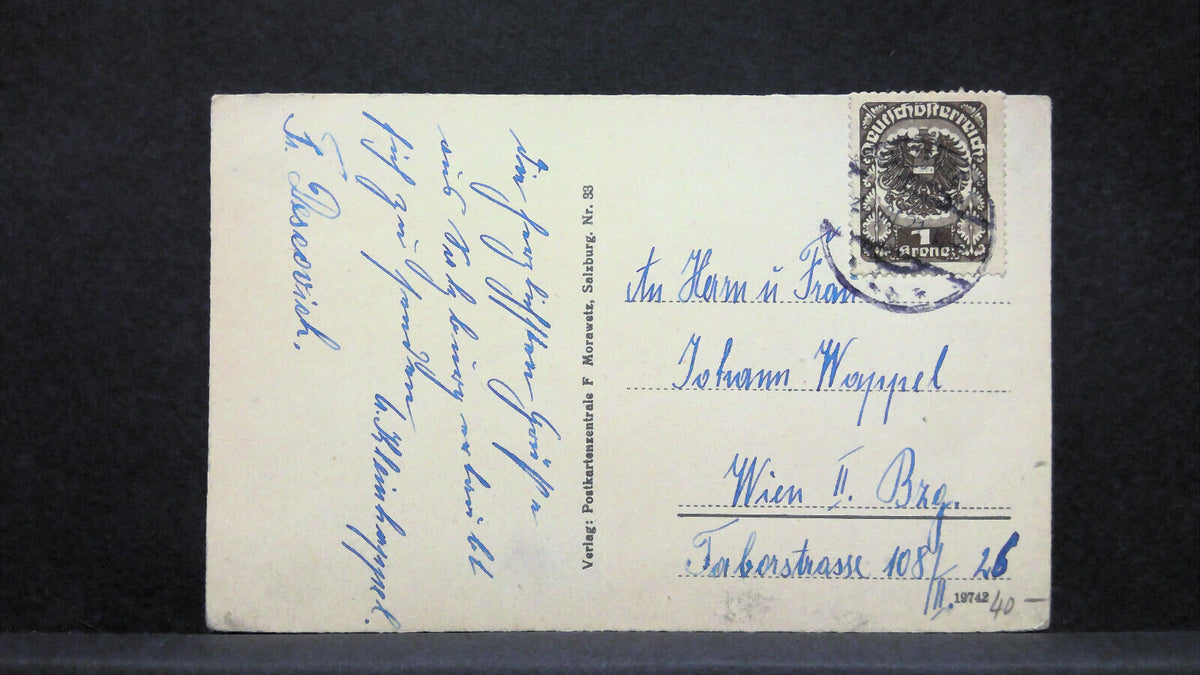 Die herzlichsten Grüße
aus Salzburg erlaubt
sich zu senden
G. Kleinhappel.
Fr. Descovich.
Verlag: Postkartenzentrale F Morawetz, Salzburg. Nr. 33
Deutschösterreich
1
Krone
An Herrn u Frau
Johann Wappel
Wien II. Bzg.
Taborstrasse 108/ 26
II.
19742
40 —